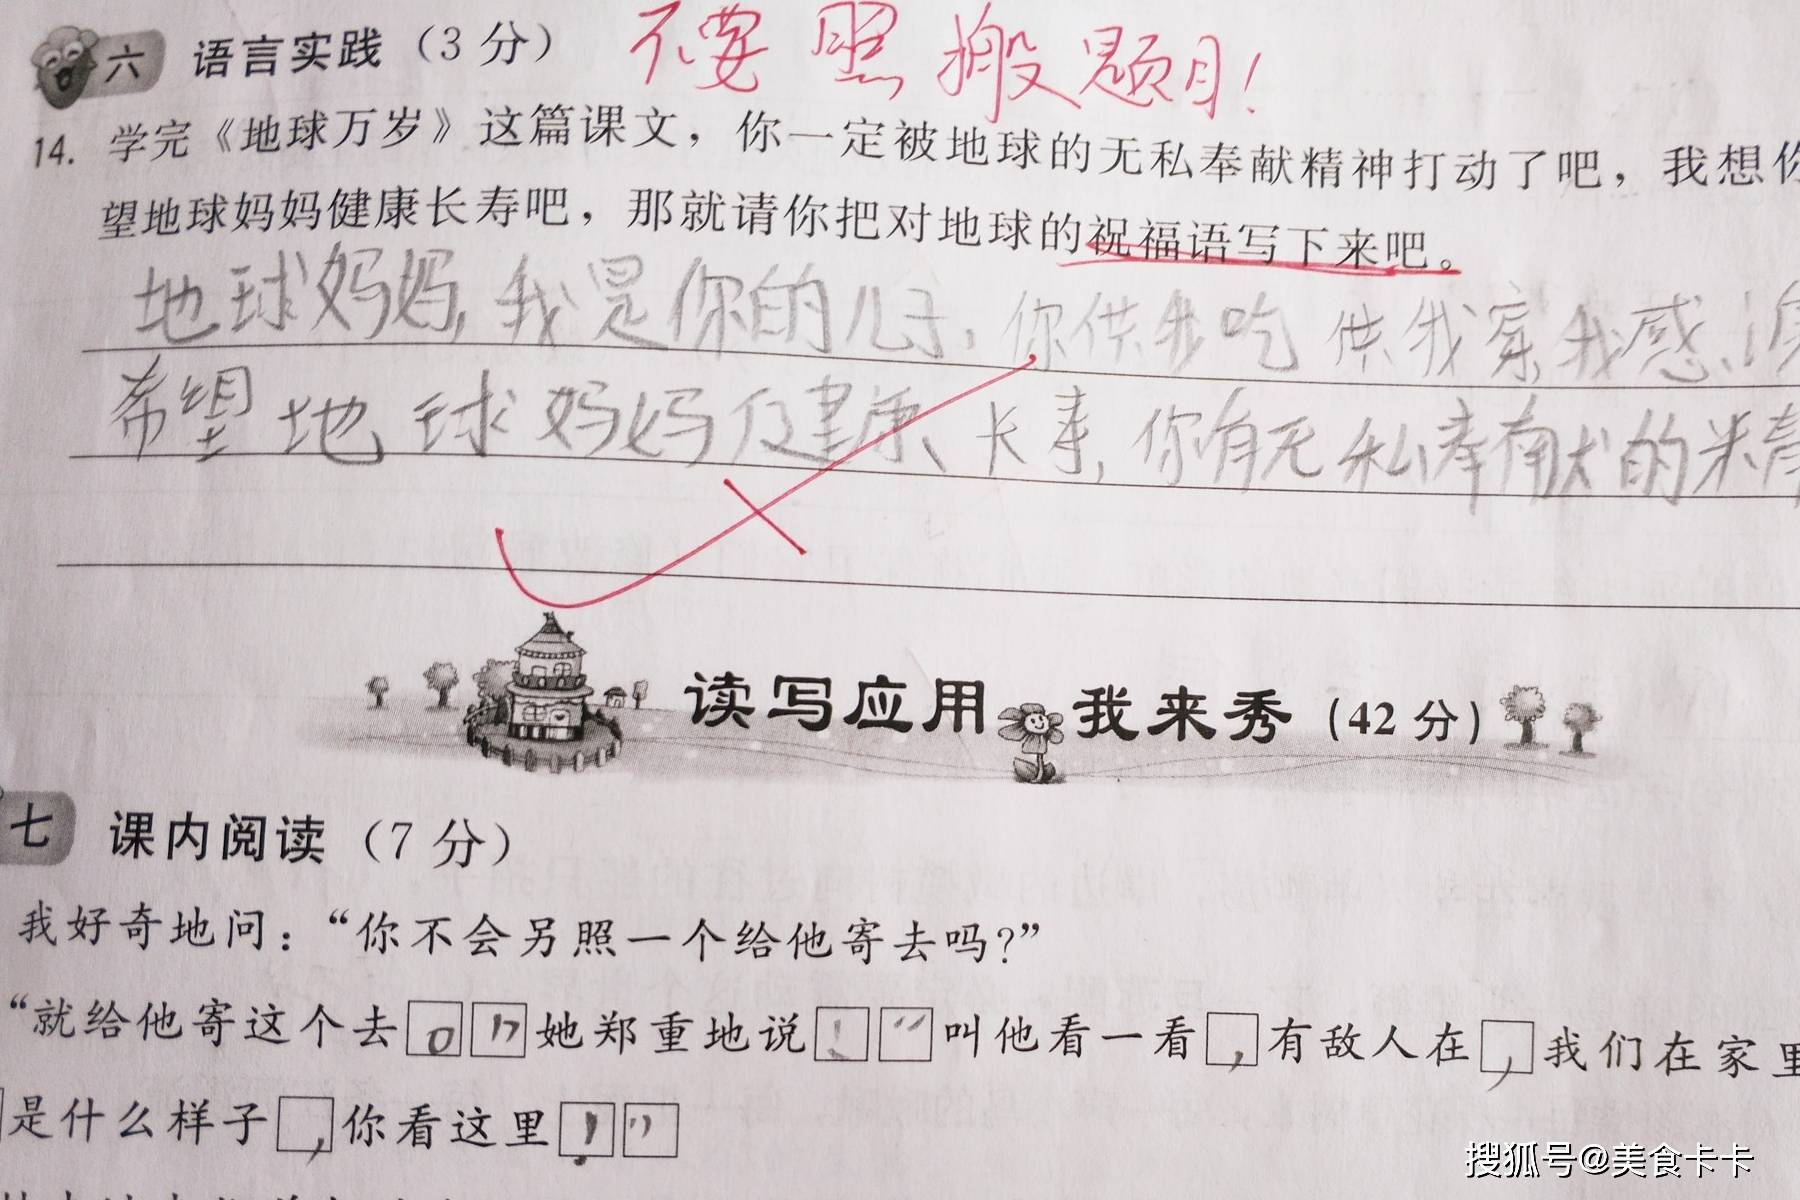 六 语言实践（3 分） 不要照搬题目！
14. 学完《地球万岁》这篇课文，你一定被地球的无私奉献精神打动了吧，我想你
望地球妈妈健康长寿吧，那就请你把对地球的祝福语写下来吧。
地球妈妈，我是你的儿子，你供我吃 供我穿，我感
希望地球妈妈健康、长寿，你有无私奉献的精
读写应用 我来秀（42 分）
七 课内阅读（7 分）
我好奇地问：“你不会另照一个给他寄去吗？”
“就给他寄这个去。”她郑重地说：“叫他看一看，有敌人在，我们在家里
是什么样子，你看这里！”
搜狐号@美食卡卡